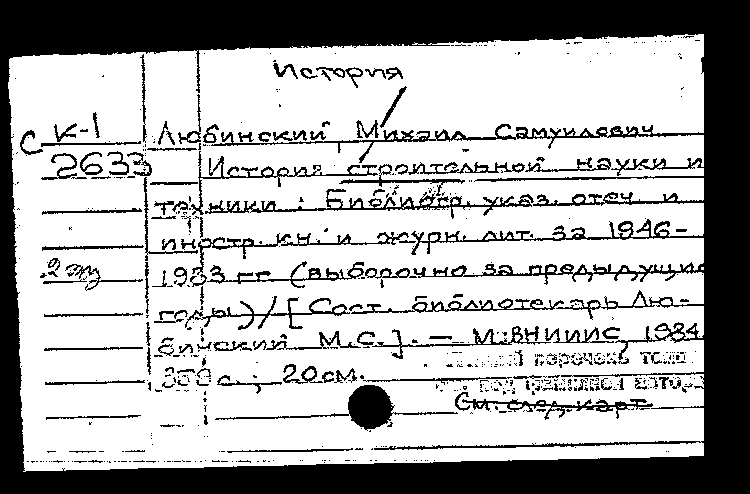 История
С К-1
2633
Любинский, Михаил Самуилович
История строительной науки и
техники : Библиогр. указ. отеч. и
иностр. кн. и журн. лит. за 1946-
2 эк
1983 гг. (выборочно за предыдущие
годы) / [Сост. библиотекарь Лю-
бинский М.С.]. — М.: ВНИИИС, 1984.
359 с. ; 20 см.
перечень томо
под фамилией автора
См. след. карт.